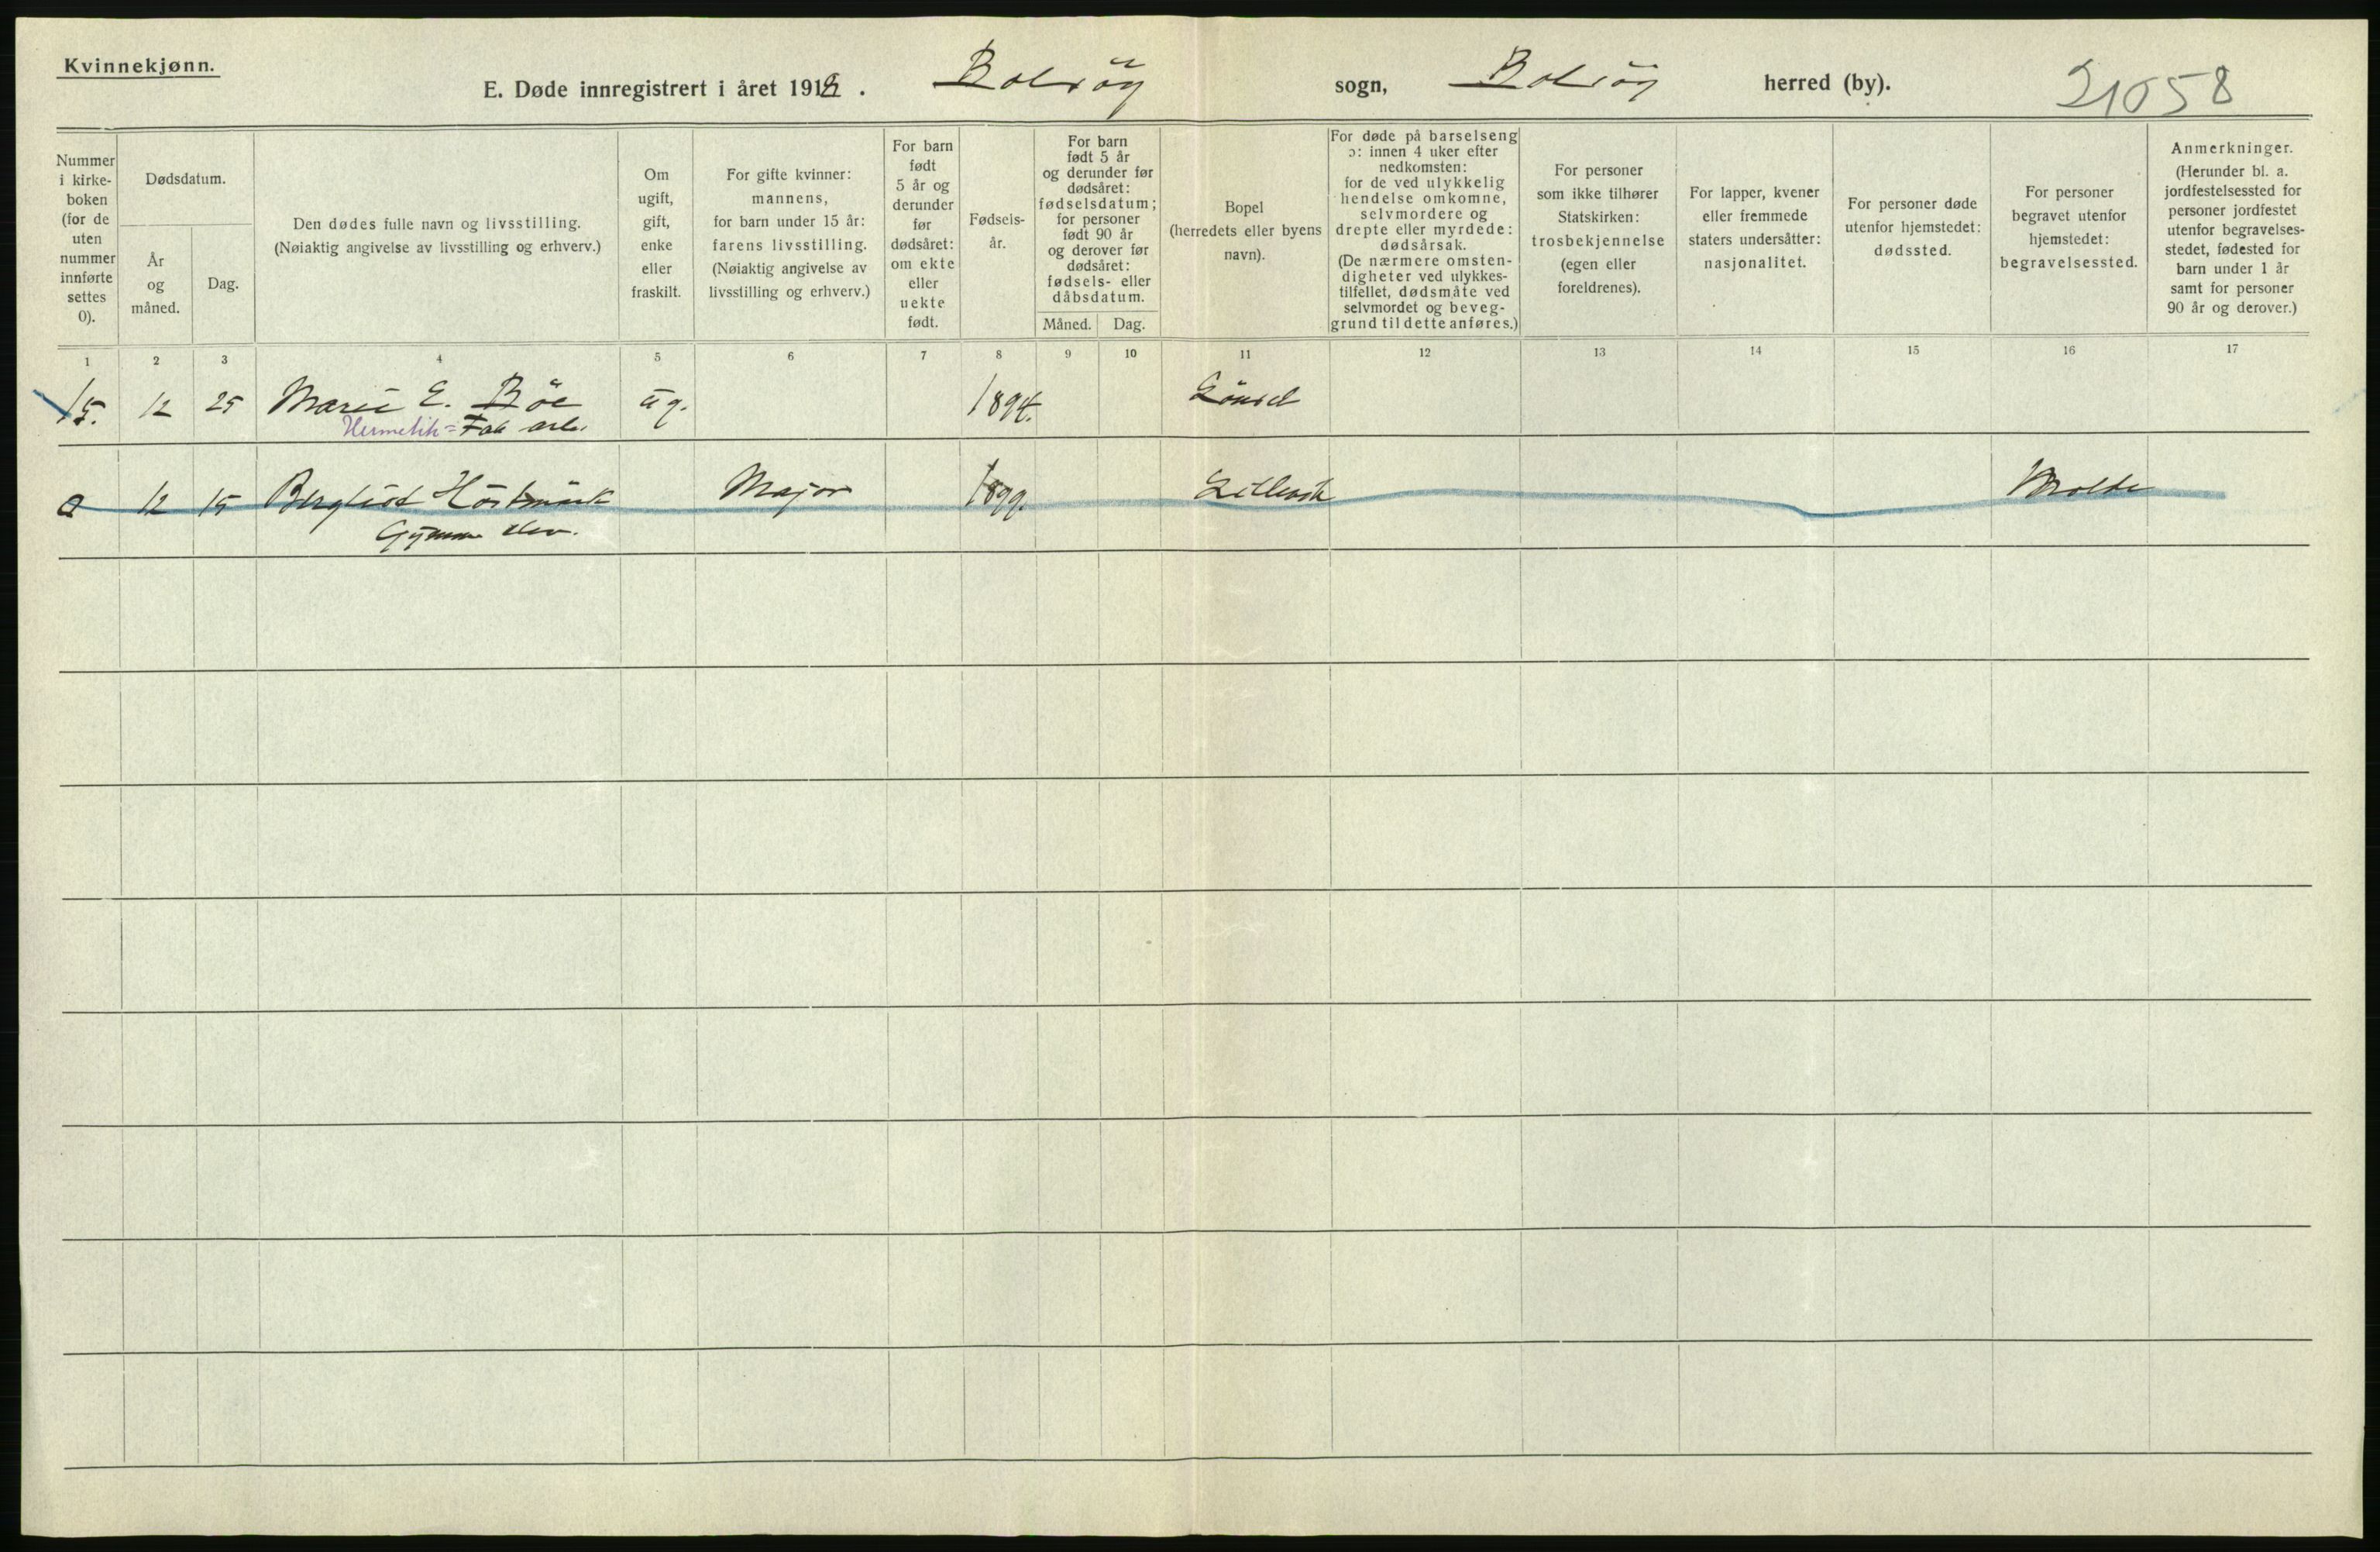 Kvinnekjønn.
E. Døde innregistrert i året 1918. Bolsöy sogn, Bolsöy herred (by). 21058
Nummer
i kirke-
boken
(for de
uten
nummer
innførte
settes
0).
Dødsdatum.
År
og
måned.
Dag.
Den dødes fulle navn og livsstilling.
(Nøiaktig angivelse av livsstilling og erhverv.)
Om
ugift,
gift,
enke
eller
fraskilt.
For gifte kvinner:
mannens,
for barn under 15 år:
farens livsstilling.
(Nøiaktig angivelse av
livsstilling og erhverv.)
For barn
født
5 år og
derunder
før
dødsåret:
om ekte
eller
uekte
født.
Fødsels-
år.
For barn
født 5 år
og derunder før
dødsåret:
fødselsdatum;
for personer
født 90 år
og derover før
dødsåret:
fødsels- eller
dåbsdatum.
Måned. Dag.
Bopel
(herredets eller byens
navn).
For døde på barselseng
ɔ: innen 4 uker efter
nedkomsten:
for de ved ulykkelig
hendelse omkomne,
selvmordere og
drepte eller myrdede:
dødsårsak.
(De nærmere omsten-
digheter ved ulykkes-
tilfellet, dødsmåte ved
selvmordet og beveg-
grund til dette anføres.)
For personer
som ikke tilhører
Statskirken:
trosbekjennelse
(egen eller
foreldrenes).
For lapper, kvener
eller fremmede
staters undersåtter:
nasjonalitet.
For personer døde
utenfor hjemstedet:
dødssted.
For personer
begravet utenfor
hjemstedet:
begravelsessted.
Anmerkninger.
(Herunder bl. a.
jordfestelsessted for
personer jordfestet
utenfor begravelses-
stedet, fødested for
barn under 1 år
samt for personer
90 år og derover.)
1 2 3 4 5 6 7 8 9 10 11 12 13 14 15 16 17
15. 12 25 Marie E. Böe ug. 1894.
Hermetik= Fab arb.
0 12 15 Bergliot Höstmark Major 1899. Molde
Gymn elev.